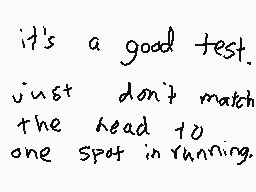 it's a good test.
just don't match
the head to
one spot in running.